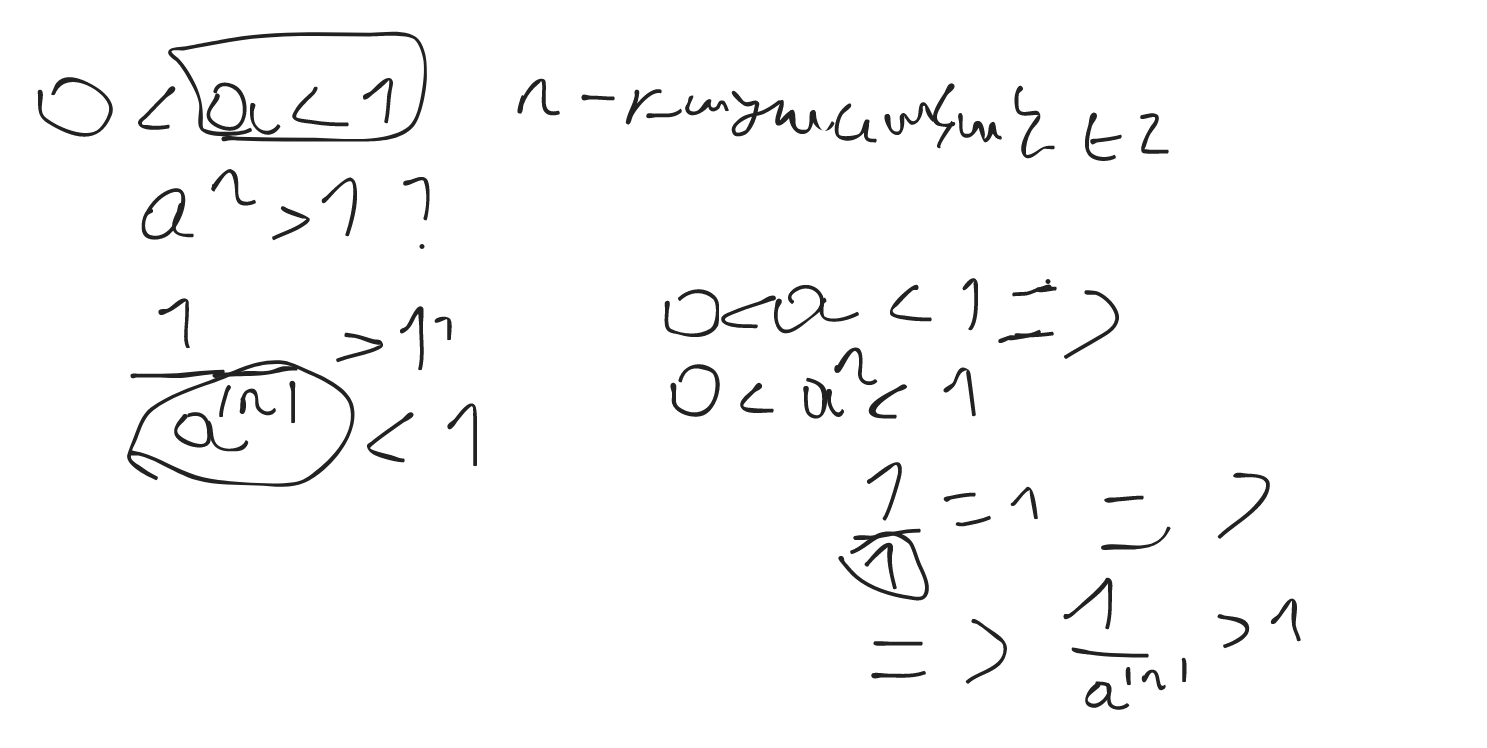 0 < a < 1 n - ∈ Z
a^n > 1 ?
1/a^|n| > 1?
a^|n| < 1
0 < a < 1 =>
0 < a^n < 1
1/1 = 1 =>
=> 1/a^|n| > 1